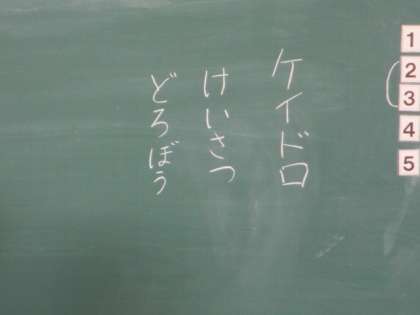 ケイドロ
けいさつ
どろぼう
1
2
3
4
5